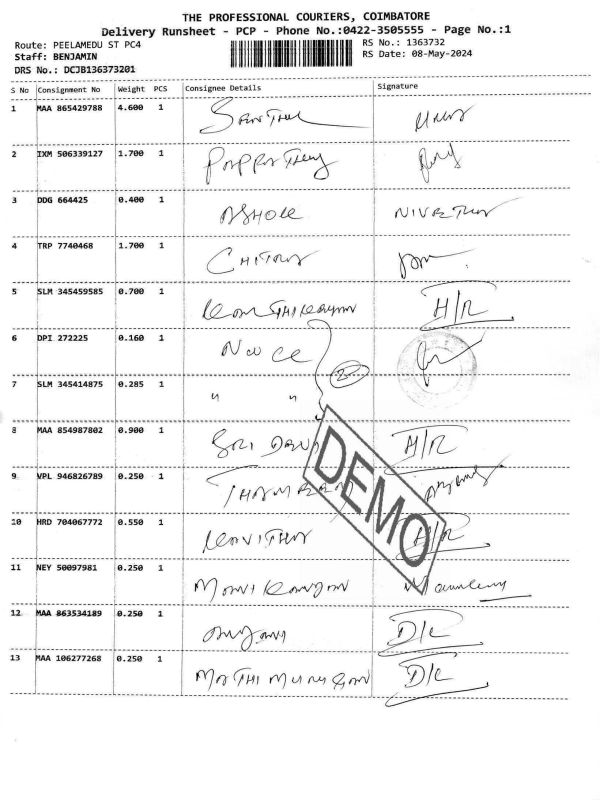 THE PROFESSIONAL COURIERS, COIMBATORE
Delivery Runsheet - PCP - Phone No.:0422-3505555 - Page No.:1
Route: PEELAMEDU ST PC4
RS No.: 1363732
Staff: BENJAMIN
RS Date: 08-May-2024
DRS No.: DCJB136373201
S No Consignment No Weight PCS Consignee Details Signature
1 MAA 865429788 4.600 1
2 IXM 506339127 1.700 1
3 DDG 664425 0.400 1 ASHOK
4 TRP 7740468 1.700 1
5 SLM 345459585 0.700 1 H/R
6 DPI 272225 0.160 1
7 SLM 345414875 0.285 1 " "
8 MAA 854987802 0.900 1 SRI DEVI H/R
9 VPL 946826789 0.250 1
10 HRD 704067772 0.550 1 KAVITHA H/R
11 NEY 50097981 0.250 1 MANIKANDAN
12 MAA 863534189 0.250 1 D/L
13 MAA 106277268 0.250 1 MATHI MURUGAN D/L
DEMO